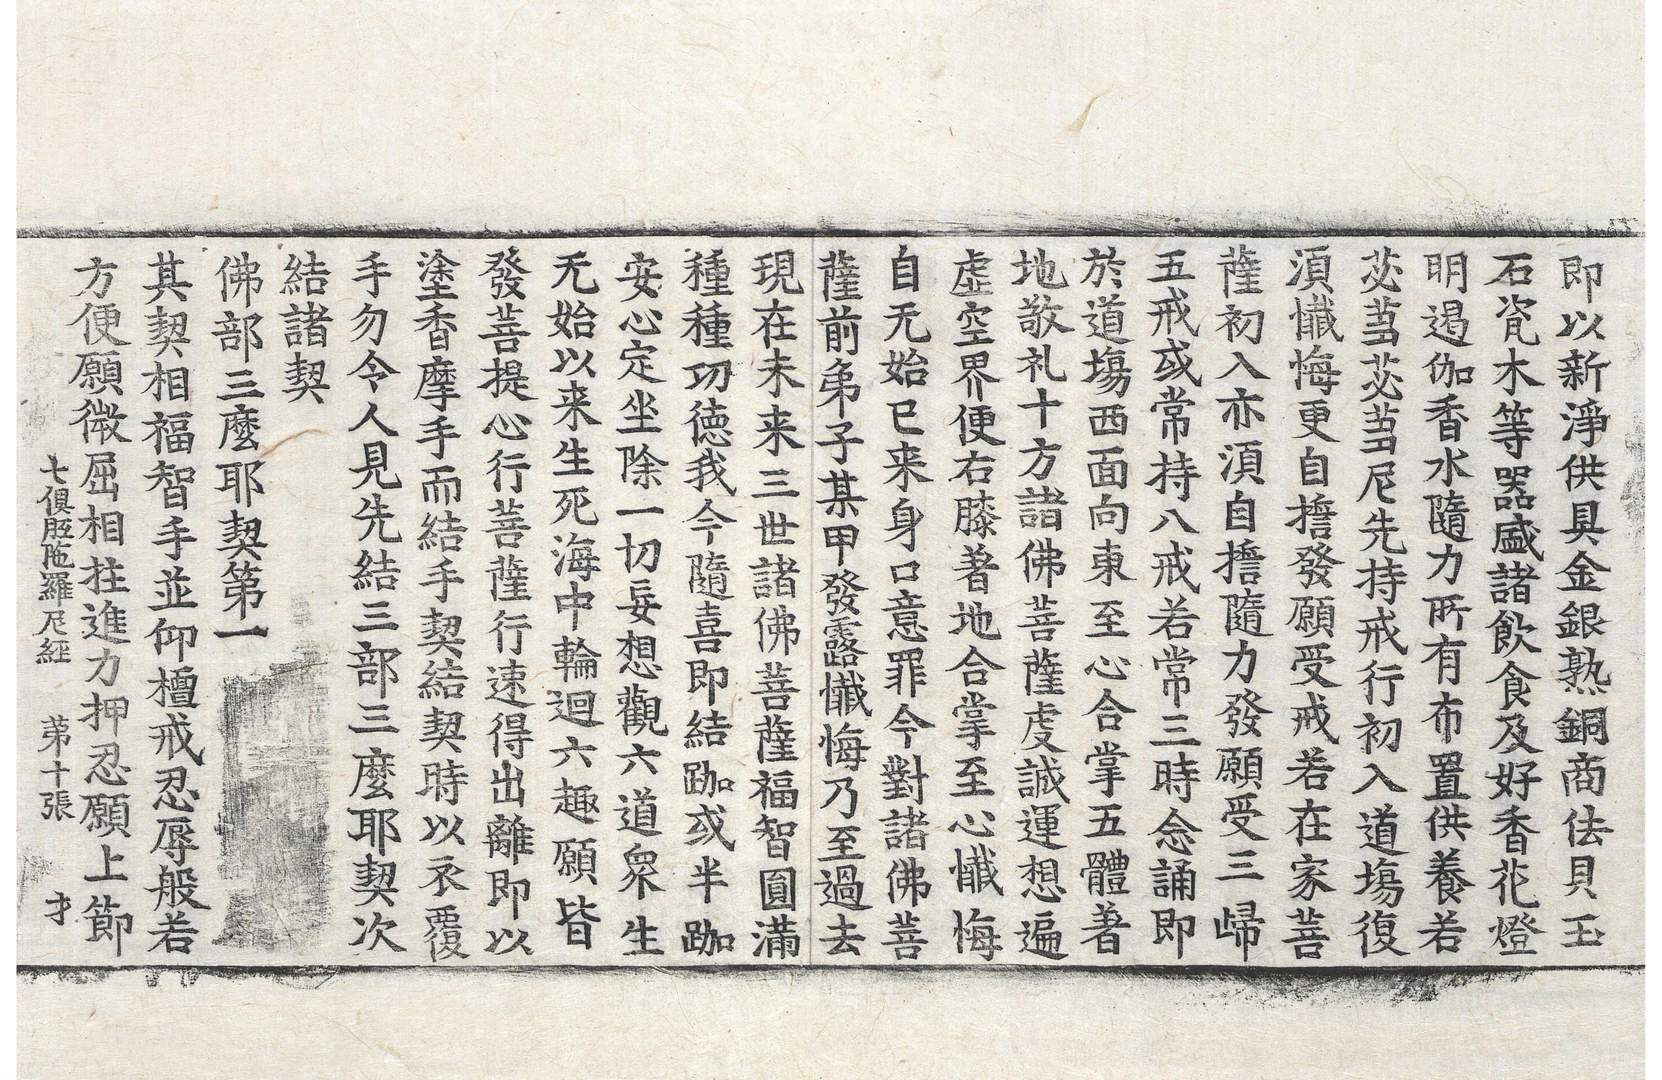 即以新淨供具金銀熟銅商佉貝玉
石瓷木等器盛諸飲食及好香花燈
明遏伽香水隨力所有布置供養若
苾蒭苾蒭尼先持戒行初入道場復
須懺悔更自擔發願受戒若在家菩
薩初入亦須自擔隨力發願受三歸
五戒或常持八戒若常三時念誦即
於道場西面向東至心合掌五體著
地敬礼十方諸佛菩薩虔誠運想遍
虛空界便右膝著地合掌至心懺悔
自无始已来身口意罪今對諸佛菩
薩前弟子某甲發露懺悔乃至過去
現在未来三世諸佛菩薩福智圓滿
種種功德我今隨喜即結跏或半跏
安心定坐除一切妄想觀六道衆生
无始以来生死海中輪迴六趣願皆
發菩提心行菩薩行速得出離即以
塗香摩手而結手契結契時以衣覆
手勿令人見先結三部三麼耶契次
結諸契
佛部三麼耶契第一
其契相福智手並仰檀戒忍辱般若
方便願微屈相拄進力押忍願上節
七俱胝陁羅尼經 第十張 才